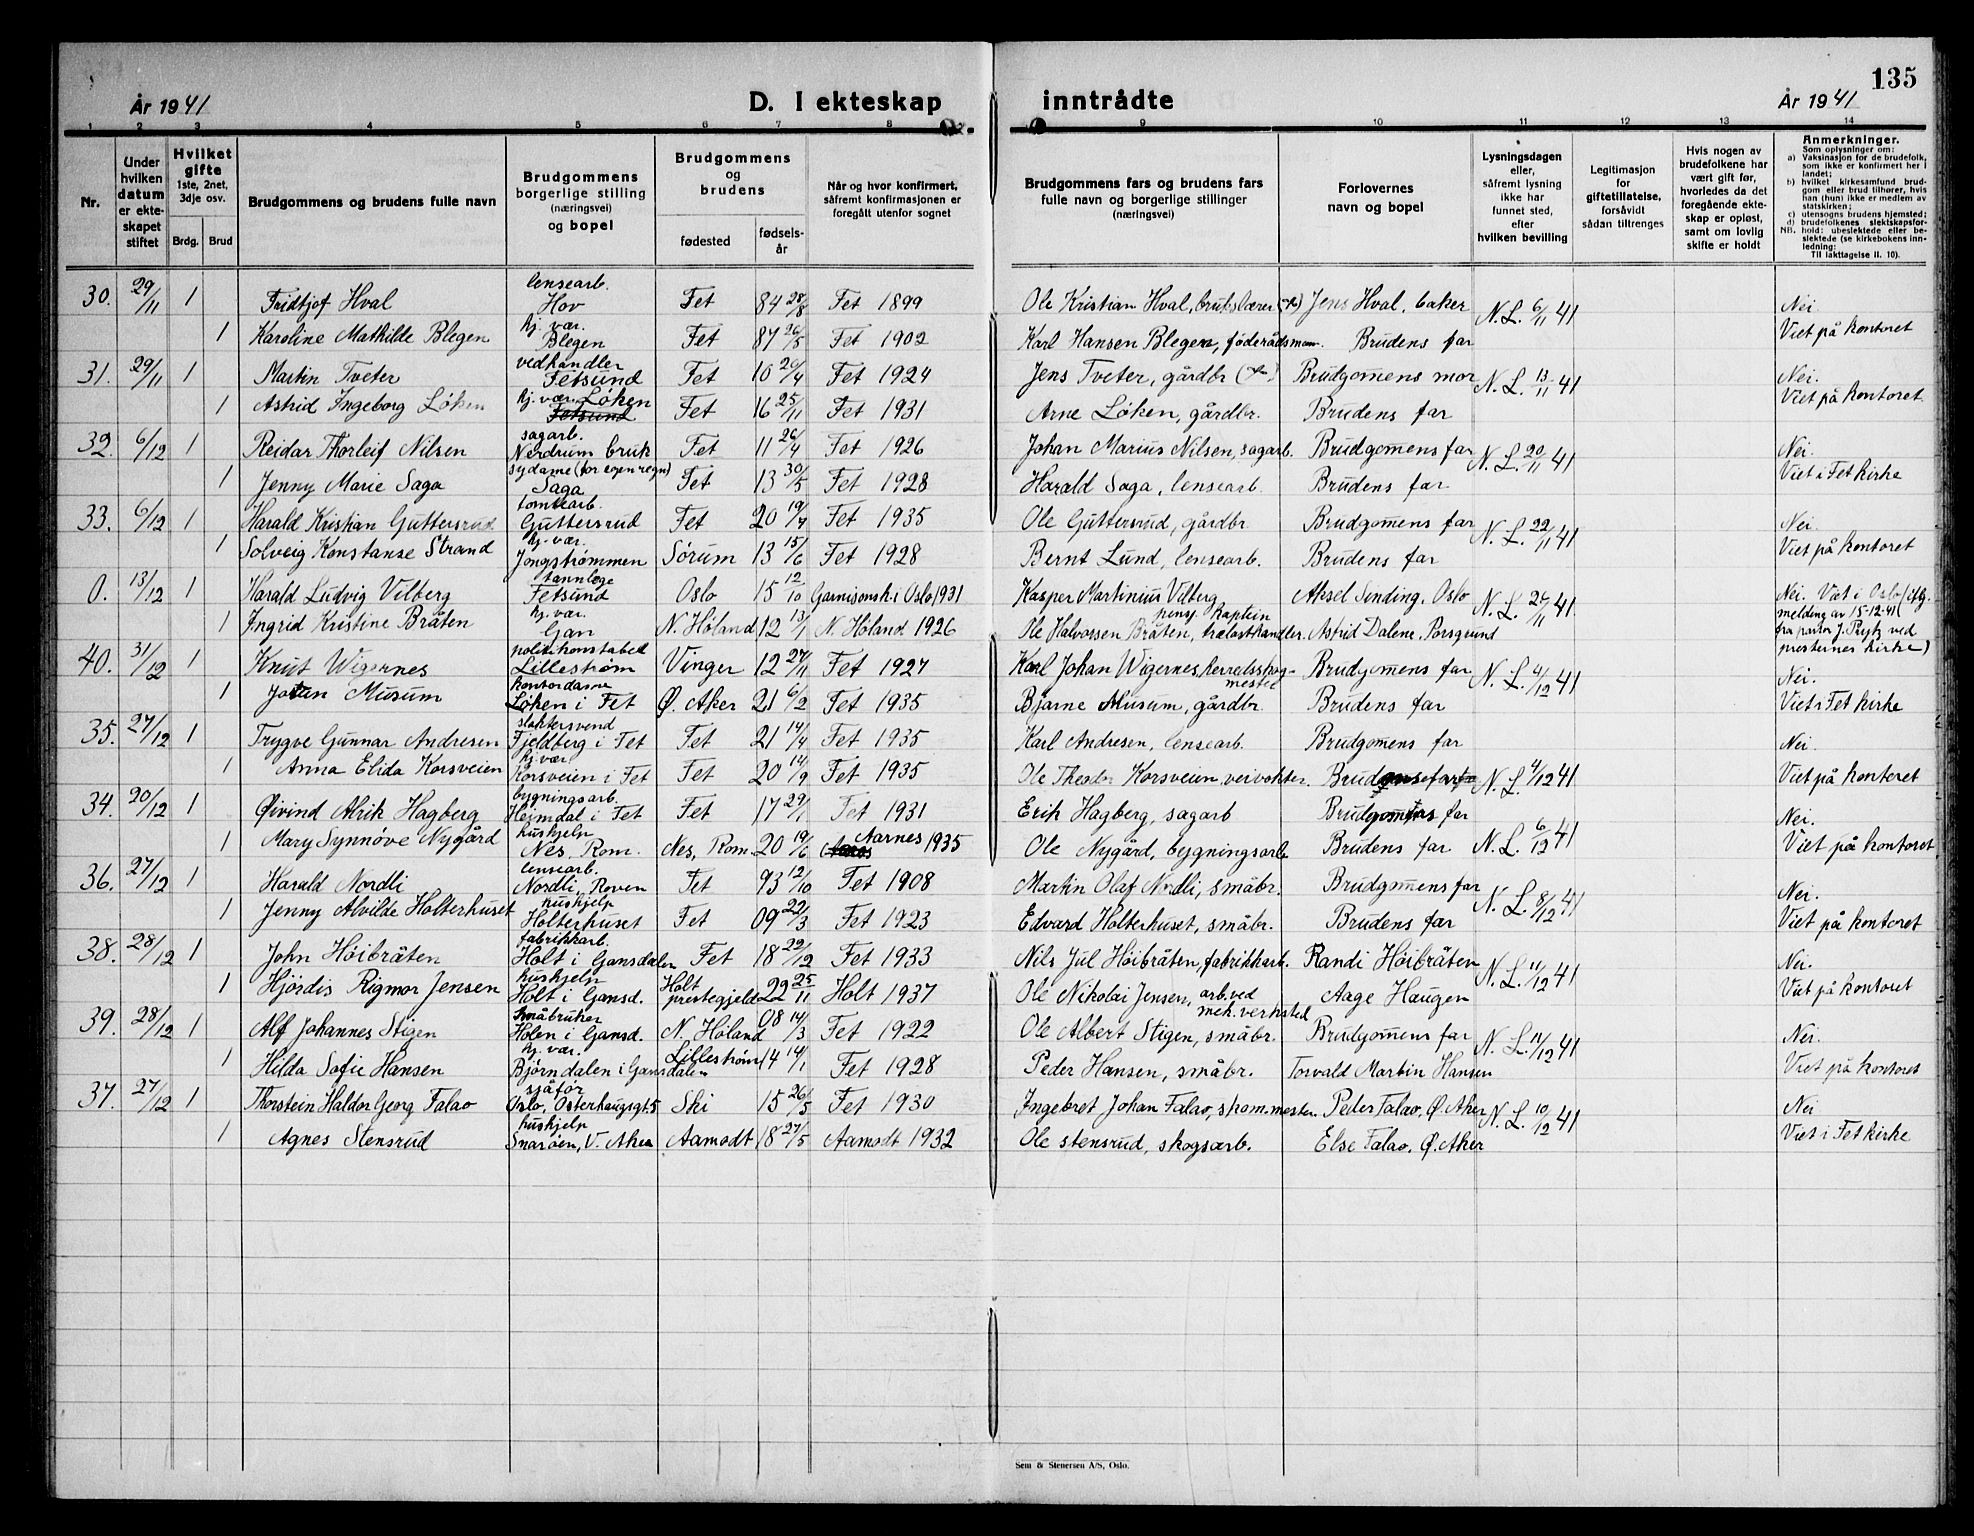 135
År 1941
D. I ekteskap inntrådte
År 1941
1 2 3 4 5 6 7 8 9 10 11 12 13 14
Nr.
Under hvilken datum er ekte-skapet stiftet
Hvilket gifte 1ste, 2net, 3dje osv.
Brdg. Brud
Brudgommens og brudens fulle navn
Brudgommens borgerlige stilling (næringsvei) og bopel
Brudgommens og brudens
fødested
fødsels-år
Når og hvor konfirmert, såfremt konfirmasjonen er foregått utenfor sognet
Brudgommens fars og brudens fars fulle navn og borgerlige stillinger (næringsvei)
Forlovernes navn og bopel
Lysningsdagen eller, såfremt lysning ikke har funnet sted, efter hvilken bevilling
Legitimasjon for giftetillatelse, forsåvidt sådan tiltrenges
Hvis nogen av brudefolkene har vært gift før, hvorledes da det foregående ekte-skap er opløst, samt om lovlig skifte er holdt
Anmerkninger.
Som oplysninger om:
a) Vaksinasjon for de brudefolk, som ikke er konfirmert her i landet;
b) hvilket kirkesamfund brud-gom eller brud tilhører, hvis han (hun) ikke er medlem av statskirken;
c) utensogns brudens hjemsted;
d) brudefolkenes slektskapsfor-hold: ubeslektede eller be-slektede (se kirkebokens inn-ledning:
NB. Til iakttagelse II. 10).
30. 29/11 1 Fridtjof Hval lensearb. Hov Fet 84 28/8 Fet 1899 Ole Kristian Hval, brukslærer Jens Hval, baker N.L. 6/11 41 Nei.
1 Karoline Mathilde Blegen hj. vær. Blegen Fet 87 26/5 Fet 1902 Karl Hansen Blegen, føderådsmann. Brudens far Viet på kontoret
31. 29/11 1 Martin Tveter vedhandler Fetsund Fet 10 20/4 Fet 1924 Jens Tveter, gårdbr Brudgomens mor N.L. 13/11 41 Nei.
1 Astrid Ingeborg Löken hj. vær. Löken Fetsund Fet 16 25/11 Fet 1931 Arne Löken, gårdbr. Brudens far Viet på kontoret
32. 6/12 1 Reidar Thorleif Nilsen sagarb. Nerdrum bruk Fet 11 26/4 Fet 1926 Johan Marius Nilsen, sagarb. Brudgomens far N.L. 20/11 41 Nei.
1 Jenny Marie Saga sydame (for egen regn) Saga Fet 13 30/5 Fet 1928 Harald Saga, lensearb. Brudens far Viet i Fet kirke
33. 6/12 1 Harald Kristian Guttersrud tomtearb. Guttersrud Fet 20 19/7 Fet 1935 Ole Guttersrud, gårdbr. Brudgomens far N.L. 22/11 41 Nei.
1 Solveig Konstanse Strand hj. vær. Jongstrømmen Sørum 13 15/6 Fet 1928 Bernt Lund, lensearb. Brudens far Viet på kontoret
0. 13/12 1 Harald Ludvig Vilberg tannlege Fetsund Oslo 15 12/10 Garnisonsk. i Oslo 1931 Kasper Martinius Vilberg pensj. kaptein Aksel Sinding, Oslo N.L. 26/11 41 Nei. Viet i Oslo iflg. melding av 15-12-41
1 Ingrid Kristine Bråten hj. vær. Gan N. Höland 12 13/1 N. Höland 1926 Ole Halvorsen Bråten, trelasthandler. Astrid Dalene, Porsgrund fra pastor J. Prytz ved presternes kirke)
40. 31/12 1 Knut Wigernes politikonstabel Lillestrøm Vinger 12 27/11 Fet 1927 Karl Johan Wigernes, herredsskog-mester Brudgomens far N.L. 4/12 41 Nei.
1 Musum kontordame Löken i Fet Ø. Aker 21 6/2 Fet 1935 Bjarne Musum, gårdbr. Brudens far Viet i Fet kirke
35. 27/12 1 Trygve Gunnar Andresen slaktersvend Fjeldberg i Fet Fet 21 14/4 Fet 1935 Karl Andresen, lensearb. Brudgomens far Nei.
1 Anna Elida Korsveien hj. vær. Korsveien i Fet Fet 20 14/9 Fet 1935 Ole Theodor Korsveien, veivokter. N.L. 4/12 41 Viet på kontoret
34. 20/12 1 Øivind Alrik Hagberg bygningsarb. Heimdal i Fet Fet 17 29/1 Fet 1931 Erik Hagberg, sagarb far Nei.
1 Mary Synnöve Nygård hushjelp Nes, Rom. Nes, Rom. 20 19/6 Aarnes 1935 Ole Nygård, bygningsarb. Brudens far N.L. 6/12 41 Viet på kontoret
36. 27/12 1 Harald Nordli lensearb. Nordli, Roven Fet 93 12/10 Fet 1908 Martin Olaf Nordli, småbr. Brudgomens far N.L. 8/12 41 Nei.
1 Jenny Alvilde Holterhuset hushjelp Holterhuset Fet 09 22/3 Fet 1923 Edvard Holterhuset, småbr. Brudens far Viet på kontoret
38. 28/12 1 John Höibråten fabrikkarb. Holt i Gansdalen Fet 18 29/12 Fet 1933 Nils Jul Höibråten, fabrikkarb. Randi Höibråten N.L. 11/12 41 Nei.
1 Hjördis Rigmor Jensen hushjelp Holt i Gansd. Holt prestegjeld 22 25/11 Holt 1937 Ole Nikolai Jensen, arb. ved mek. verksted Aage Haugen Viet på kontoret
39. 28/12 1 Alf Johannes Stigen småbruker Holen i Gansd. N. Höland 08 14/3 Fet 1922 Ole Albert Stigen, småbr. Brudgomens far N.L. 11/12 41 Nei.
1 Hilda Sofie Hansen hj. vær. Björndalen i Gansdalen Lillestrøm 14 14/1 Fet 1928 Peder Hansen, småbr. Torvald Martin Hansen Viet på kontoret
37. 27/12 1 Thorstein Haldor Georg Falao sjåfør Oslo, Osterhausgt. 5 Ski 15 26/5 Fet 1930 Ingebret Johan Falao, skom.mester. Peder Falao, Ø. Aker N.L. 10/12 41 Nei
1 Agnes Stensrud hushjelp Snarøen, V. Aker Aamodt 18 27/5 Aamodt 1932 Ole Stensrud, skogsarb. Else Falao, Ø. Aker Viet i Fet kirke
Sem & Stenersen A/S, Oslo.